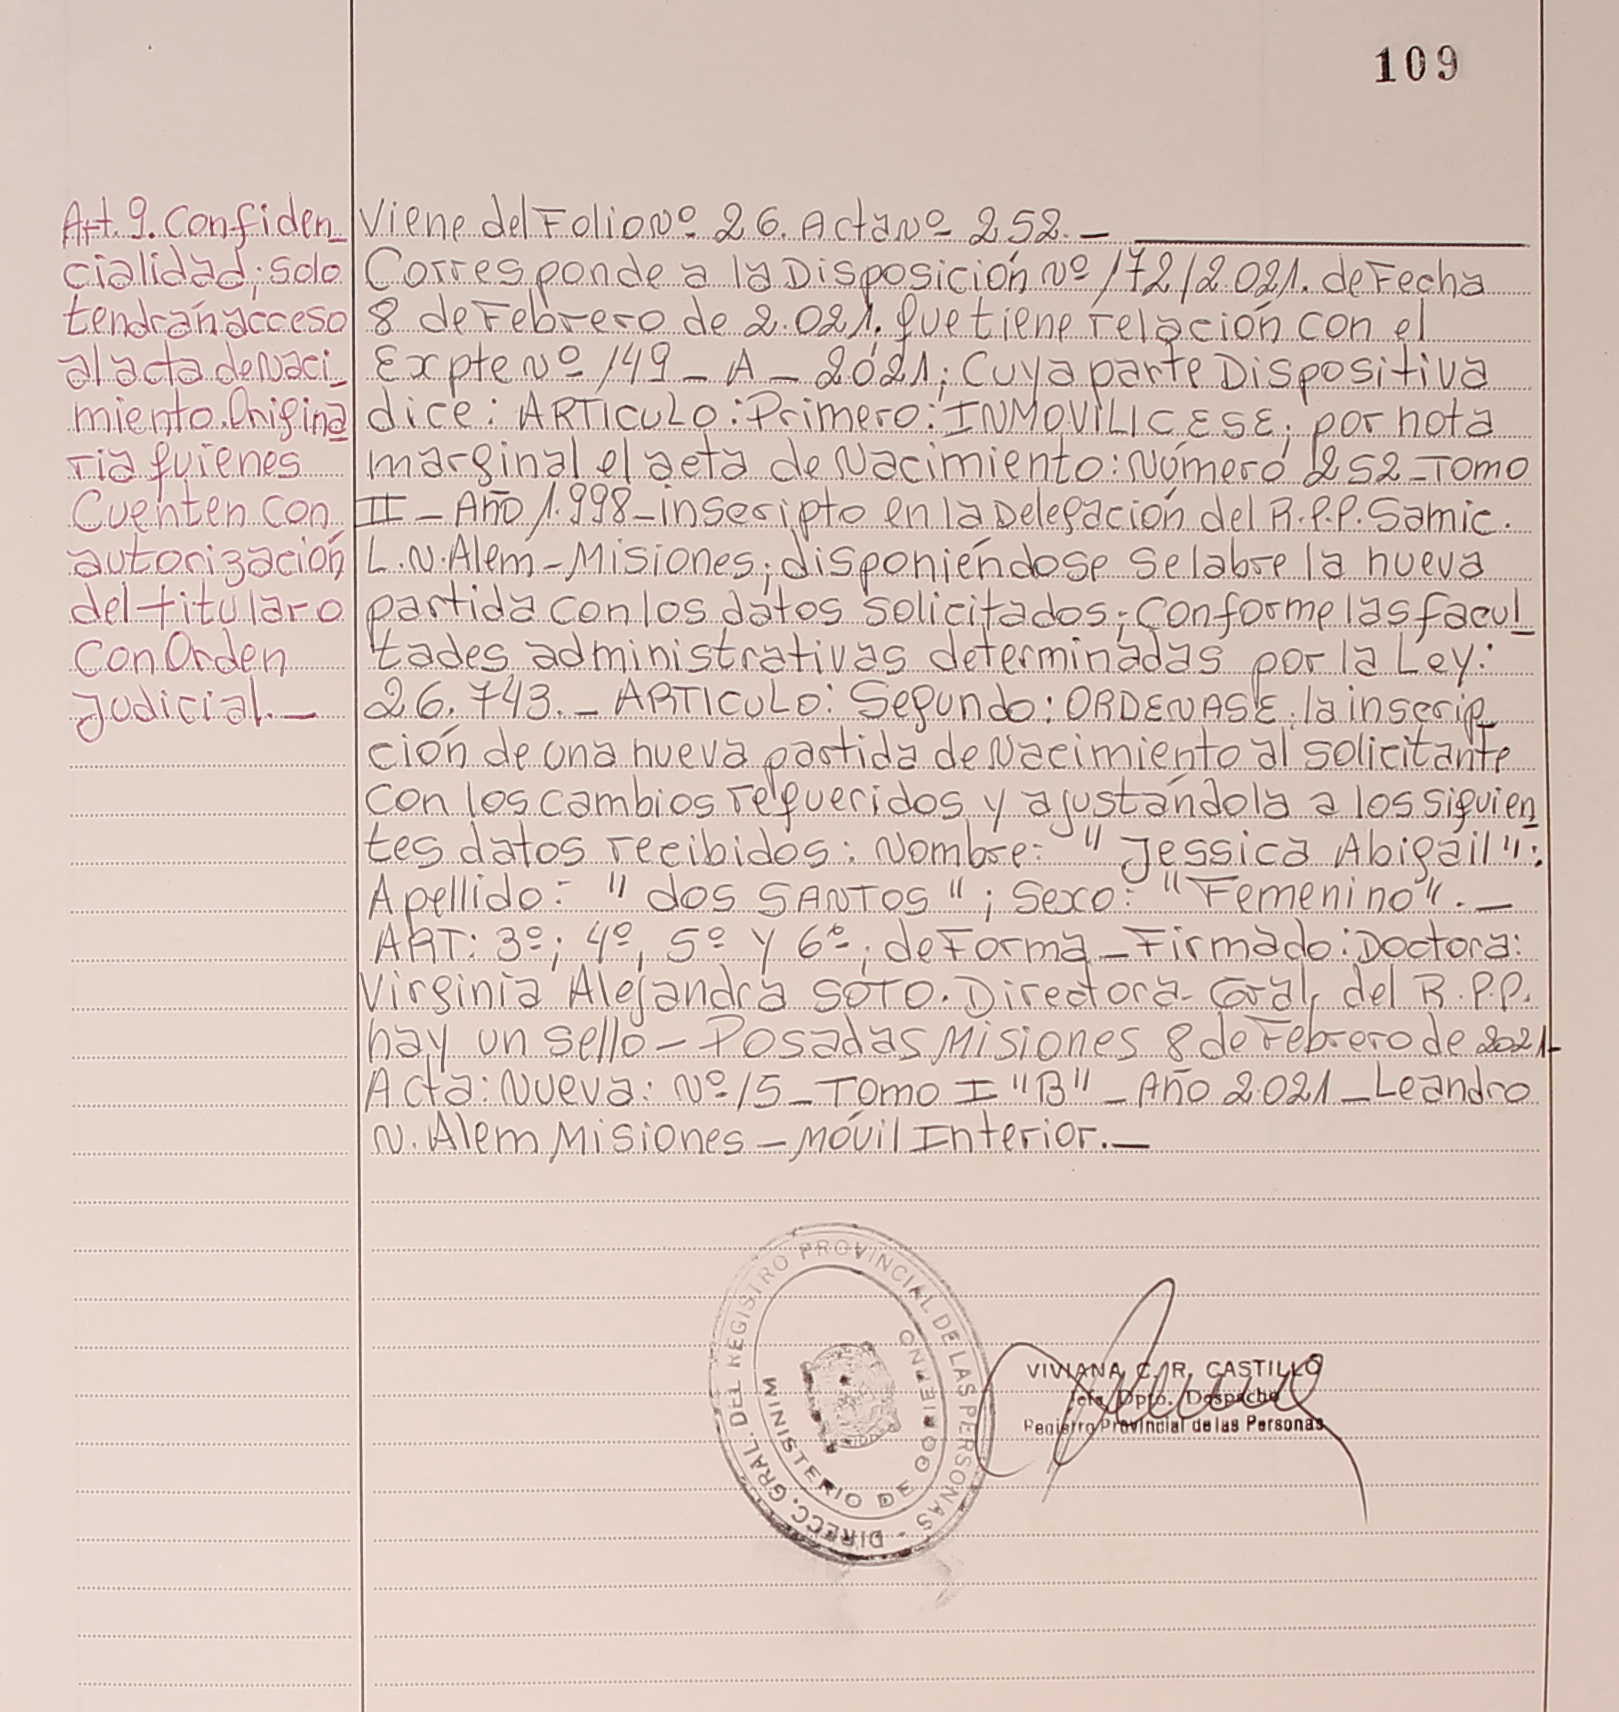 109
Art. 9. Confiden_
cialidad; solo
tendrán acceso
al acta de Naci_
miento. Origina
ria quienes
Cuenten con
autorización
del titular o
Con Orden
Judicial. _
Viene del Folio Nº 26. Acta Nº 252. _
Corresponde a la Disposición Nº 172/2.021. de Fecha
8 de Febrero de 2.021. que tiene relación con el
Expte Nº 149 _ A _ 2021; Cuya parte Dispositiva
dice: ARTICULO: Primero: INMOVILICESE; por nota
marginal el acta de Nacimiento: Número 252 _ Tomo
II _ Año 1.998 _ inscripto en la Delegación del R.P.P. Samic.
L.N. Alem _ Misiones; disponiéndose se labre la nueva
partida con los datos solicitados; Conforme las facul_
tades administrativas determinadas por la Ley:
26.743. _ ARTICULO: Segundo: ORDENASE; la inscrip_
ción de una nueva partida de Nacimiento al solicitante
con los cambios requeridos y ajustándola a los siguien_
tes datos recibidos: Nombre: "Jessica Abigail":
Apellido: "dos SANTOS"; Sexo: "Femenino". _
ART: 3º; 4º, 5º y 6º; de Forma _ Firmado: Doctora:
Virginia Alejandra SOTO. Directora Gral, del R.P.P.
hay un sello _ Posadas Misiones 8 de Febrero de 2021 _
Acta: Nueva: Nº 15 _ Tomo I "B" _ Año 2.021 _ Leandro
N. Alem Misiones _ Móvil Interior. _
DIRECC. GRAL. DEL REGISTRO PROVINCIAL DE LAS PERSONAS -
MINISTERIO DE GOBIERNO
VIVIANA C. R. CASTILLO
Jefa Dpto. Despacho
Registro Provincial de las Personas